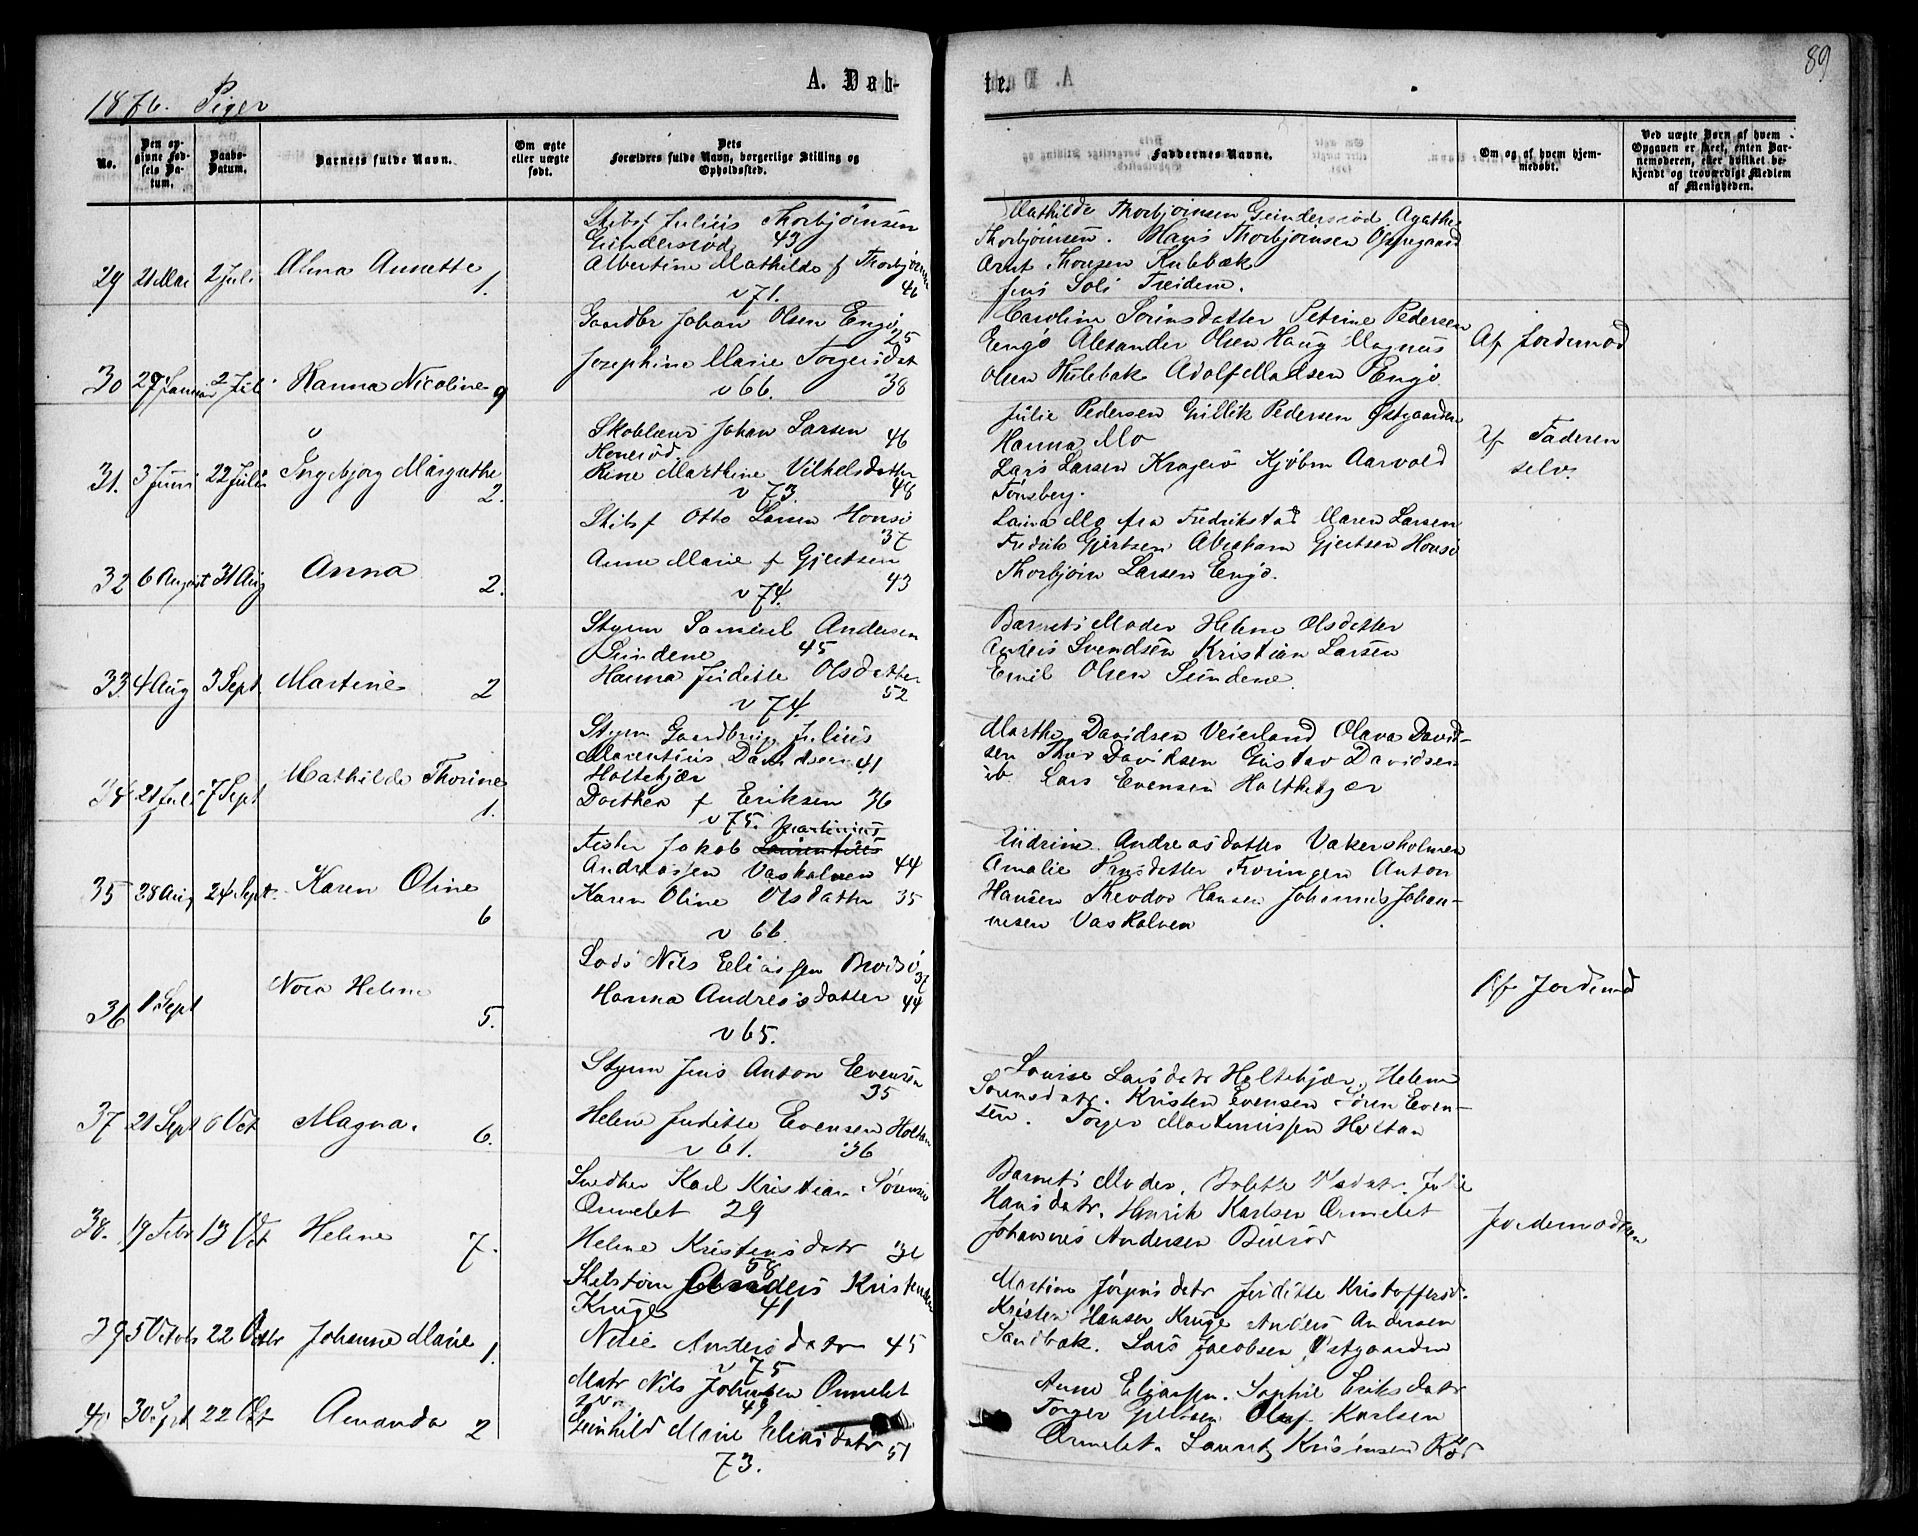 89
1876. Piger
A. Døb-
te.
No.
Den op-
givne Fød-
sels Da-
tum.
Daabs-
Datum.
Barnets fulde Navn.
Om ægte
eller uægte
født.
Dets
Forældres fulde Navn, borgerlige Stilling og
Opholdssted.
Faddernes Navne.
Om og af hvem hjem-
medøbt.
Ved uægte Børn af hvem
Opgaven er skeet, enten Bar-
nemoderen, eller hvilket be-
kjendt og troværdigt Medlem
af Menigheden.
29 21 Mai 2 Juli Alma Annette 1.
Skibsf Julius Thorbjörnsen
43
Albertine Mathilde f Thorbjörnsen
46
v 71.
Mathilde Thorbjörnsen Agathe
Thorbjörnsen. Hans Thorbjörnsen
Jens
30 27 Januar 2 Juli Hanna Nicoline 9
Gaardbr Johan Olsen Engö
25
Josephine Marie Torgersdat
v 66. 38
Caroline Sörensdatter Petrine Pedersen
Engö Alexander Olsen Haug Magnus
Olsen Hulebak Adolf Madsen Engö
Af Jordemod
31. 3 Juni 22 Juli Ingebjorg Margrethe 2.
Johan Larsen 46
Marthine
v 73. 48
Julie Pedersen Gullik Pedersen Östgaarden
Hanna Mo
Lars Larsen Kragerö Aarvold
Tönsberg.
Af Faderen
selv.
32 6 August 31 Aug Anna 2.
Skibsf Otto Larsen
37
Anne Marie f Gjertsen
v 74. 43
Mo fra Fredrikstad Maren Larsen
Fredrik Gjertsen Abraham Gjertsen
Thorbjörn Larsen Engö.
33 4 Aug 3 Sept Martine 2
Styrm Samuel Andersen
Sundene 45
Hanna Juditte Olsdatter
v 74. 52
Barnets Moder Helene Olsdatter
Svendsen Kristian Larsen
Emil Olsen Sundene.
34 21 Juli 7 Sept Mathilde Thorine 1.
Styrm Gaardbrug Julius
Davidsen 41
Holtekjær
Dorthea f Eriksen 36
v 75.
Marthe Davidsen Veierland Olava David-
sen Thor Davidsen Gustav Davidsen
ib Lars Evensen Holtekjær
35 28 Aug 24 Sept. Karen Oline 6
Martinius
Fisker Jakob
Andreassen Vaskalven 44
Karen Oline Olsdatter 35
v 66.
Andreasdatter
Amalie Anton
Hansen Theodor Hansen Johannes Johan-
nesen Vaskalven
36 1 Sept Nora Helene 5.
Lods Nils Eliassen 37
Hanna Andreasdatter 44
v 65.
Af Jordemod
37 21 Sept 6 Oct Magna. 6.
Styrm Jens Anton Evensen
35
Helene Juditte Evensen Holtan
v 61. 36
Louise Larsdatr Holtekjær. Helene
Sörensdatr. Kristen Evensen Sören Even-
sen. Torger Martinussen Holtan
38. 19 Febr 13 Oct Helene 7.
Karl Kristian Sörensen
Ormelet 29
Helene Kristensdatr 31
58
Barnets Moder. Bolette Olsdatr. Julie
Hansdatr. Henrik Karlsen Ormelet
Johannes Andersen
Jordemodren
39 5 Octobr 22 Octbr Johanne Marie 1.
Anders Kristensen
Kruge 41
Andersdatr 45
v 75
Martine Jörgensdatr Juditte Kristoffersd.
Kristen Hansen Kruge Anders Andersen
Sandbæk. Lars Jacobsen Östgaarden
40 30 Sept 22 Oct Amanda 2
Matr Nils Johansen Ormelet
49
Gunhild Marie Eliasdatr 51
73.
Anne Eliassen. Sophie Eriksdatr
Torger Olaf Karlsen
Ormelet.